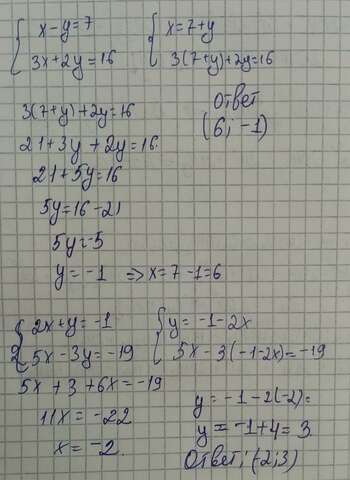 { x-y=7
3x+2y=16
{ x=7+y
3(7+y)+2y=16
3(7+y)+2y=16
21+3y+2y=16
21+5y=16
5y=16-21
5y=-5
y=-1 => x=7-1=6
Ответ
(6; -1)
{ 2x+y=-1
5x-3y=-19
{ y=-1-2x
5x-3(-1-2x)=-19
5x+3+6x=-19
11x=-22
x=-2.
y=-1-2(-2)=
y=-1+4=3.
Ответ: (-2;3)